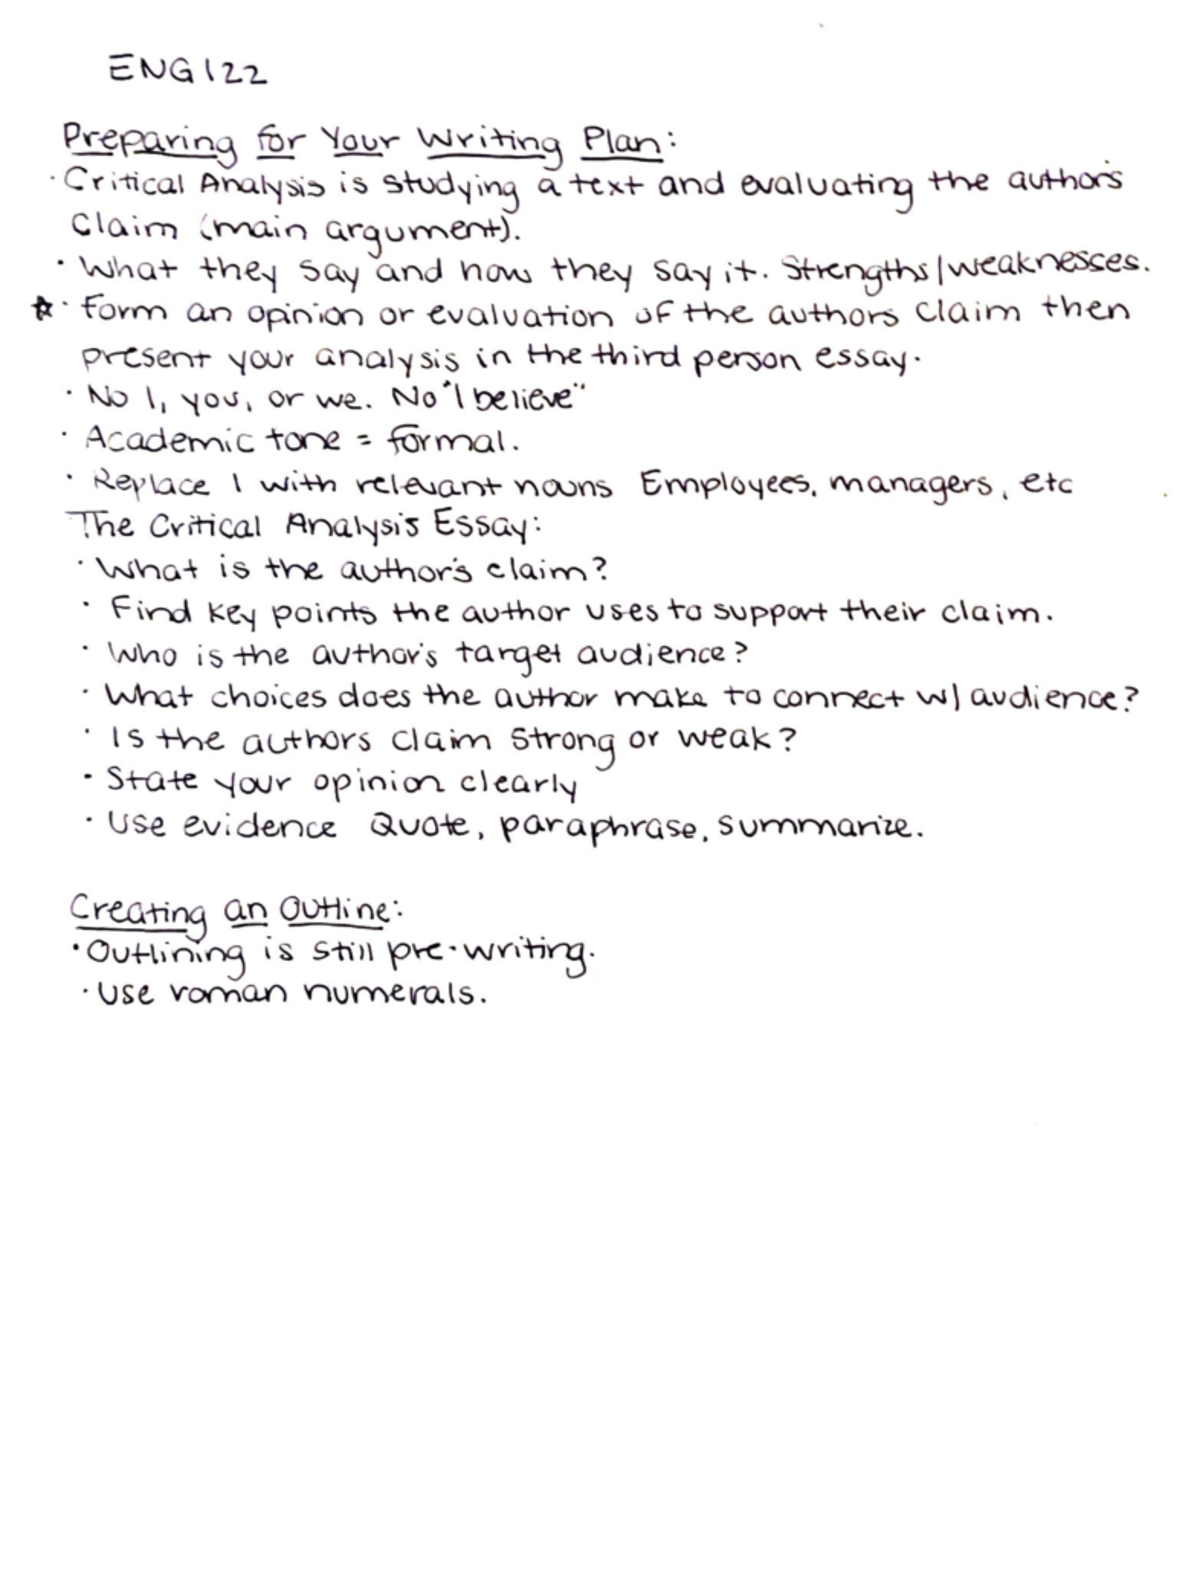 ENG122
Preparing for Your Writing Plan:
· Critical Analysis is studying a text and evaluating the author's
Claim (main argument).
· What they say and how they say it. Strengths/weaknesses.
☆ · Form an opinion or evaluation of the authors claim then
present your analysis in the third person essay.
· No I, you, or we. No "I believe"
· Academic tone = formal.
· Replace I with relevant nouns Employees, managers, etc
The Critical Analysis Essay:
· What is the author's claim?
· Find key points the author uses to support their claim.
· Who is the author's target audience?
· What choices does the author make to connect w/ audience?
· Is the authors claim strong or weak?
· State your opinion clearly
· Use evidence Quote, paraphrase, summarize.
Creating an Outline:
· Outlining is still pre-writing.
· Use roman numerals.